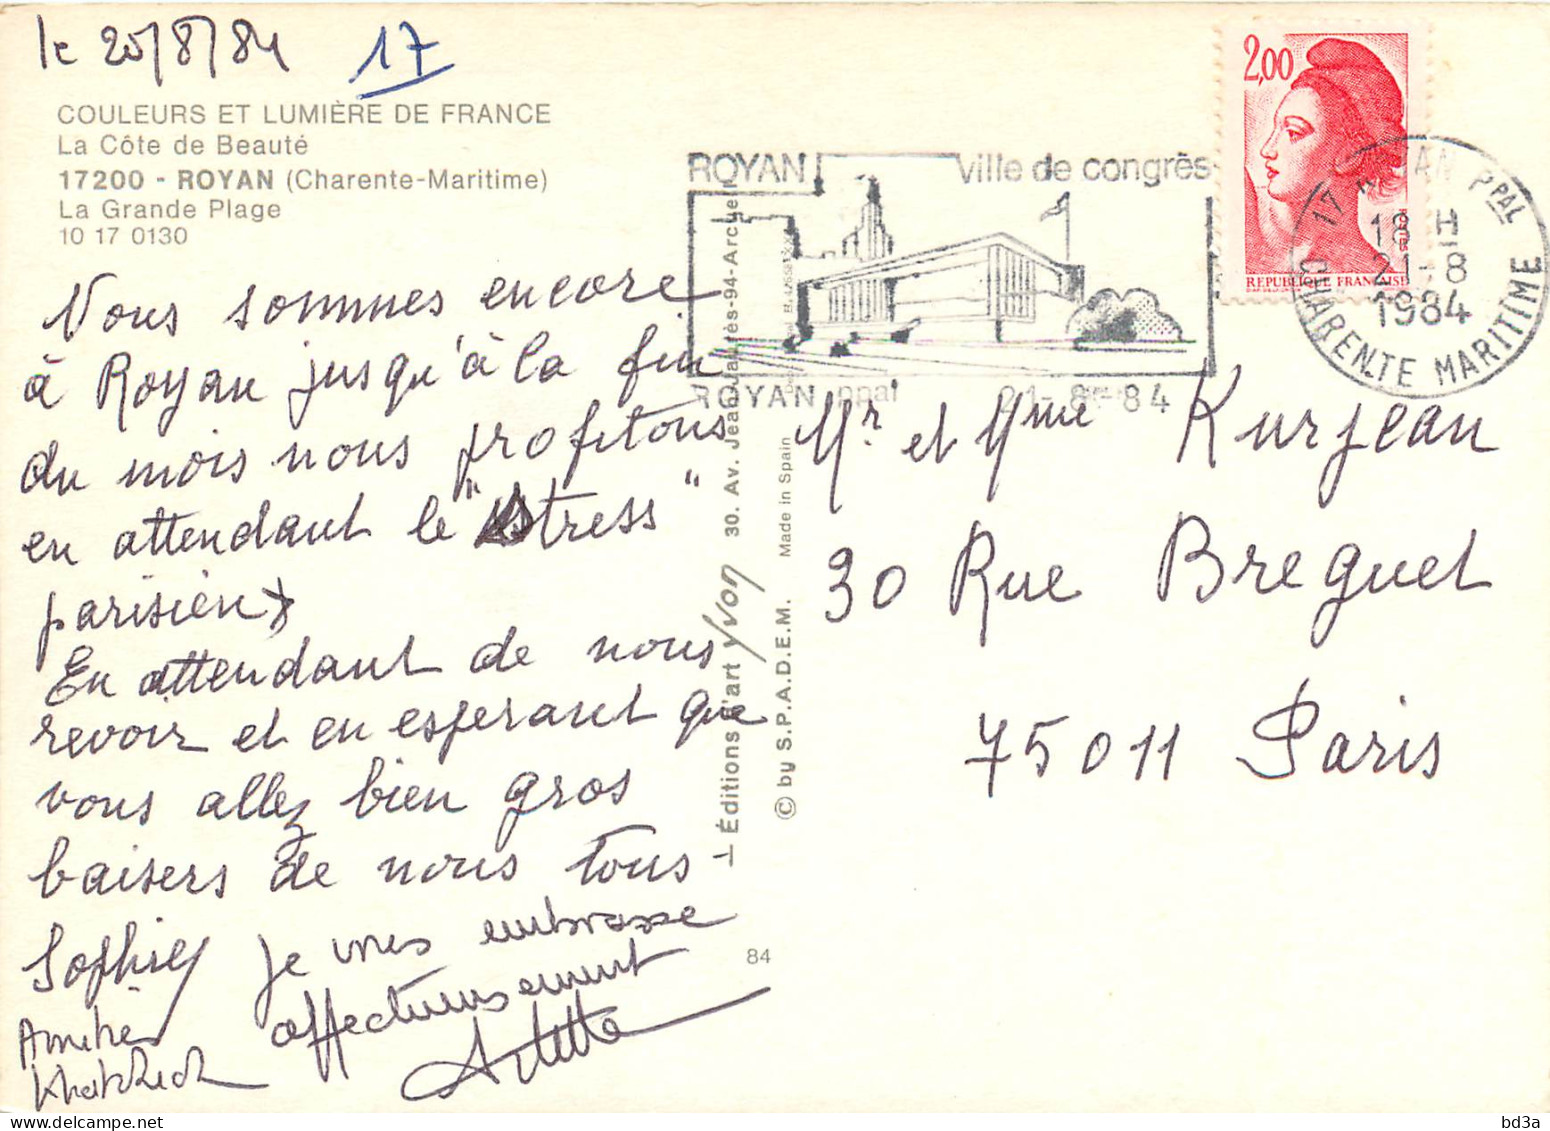 le 20/8/84 17
COULEURS ET LUMIÈRE DE FRANCE
La Côte de Beauté
17200 - ROYAN (Charente-Maritime)
La Grande Plage
10 17 0130
Nous sommes encore
à Royan jusqu'à la fin
du mois nous profitons
en attendant le "stress"
parisien
En attendant de nous
revoir et en esperant que
vous allez bien gros
baisers de nous tous
Sophie je vous embrasse
affectueusement
Arlette
ROYAN ville de congrès
ROYAN ppal 21-8-84
2,00
REPUBLIQUE FRANÇAISE
17 ROYAN PPAL
18 H
21-8
1984
CHARENTE MARITIME
Éditions d'art Yvon 30. Av. Jean-Jaurès-94-Arcueil
© by S.P.A.D.E.M. Made in Spain
84
Mr et Mme Kurjean
30 Rue Breguet
75011 Paris
bd3a